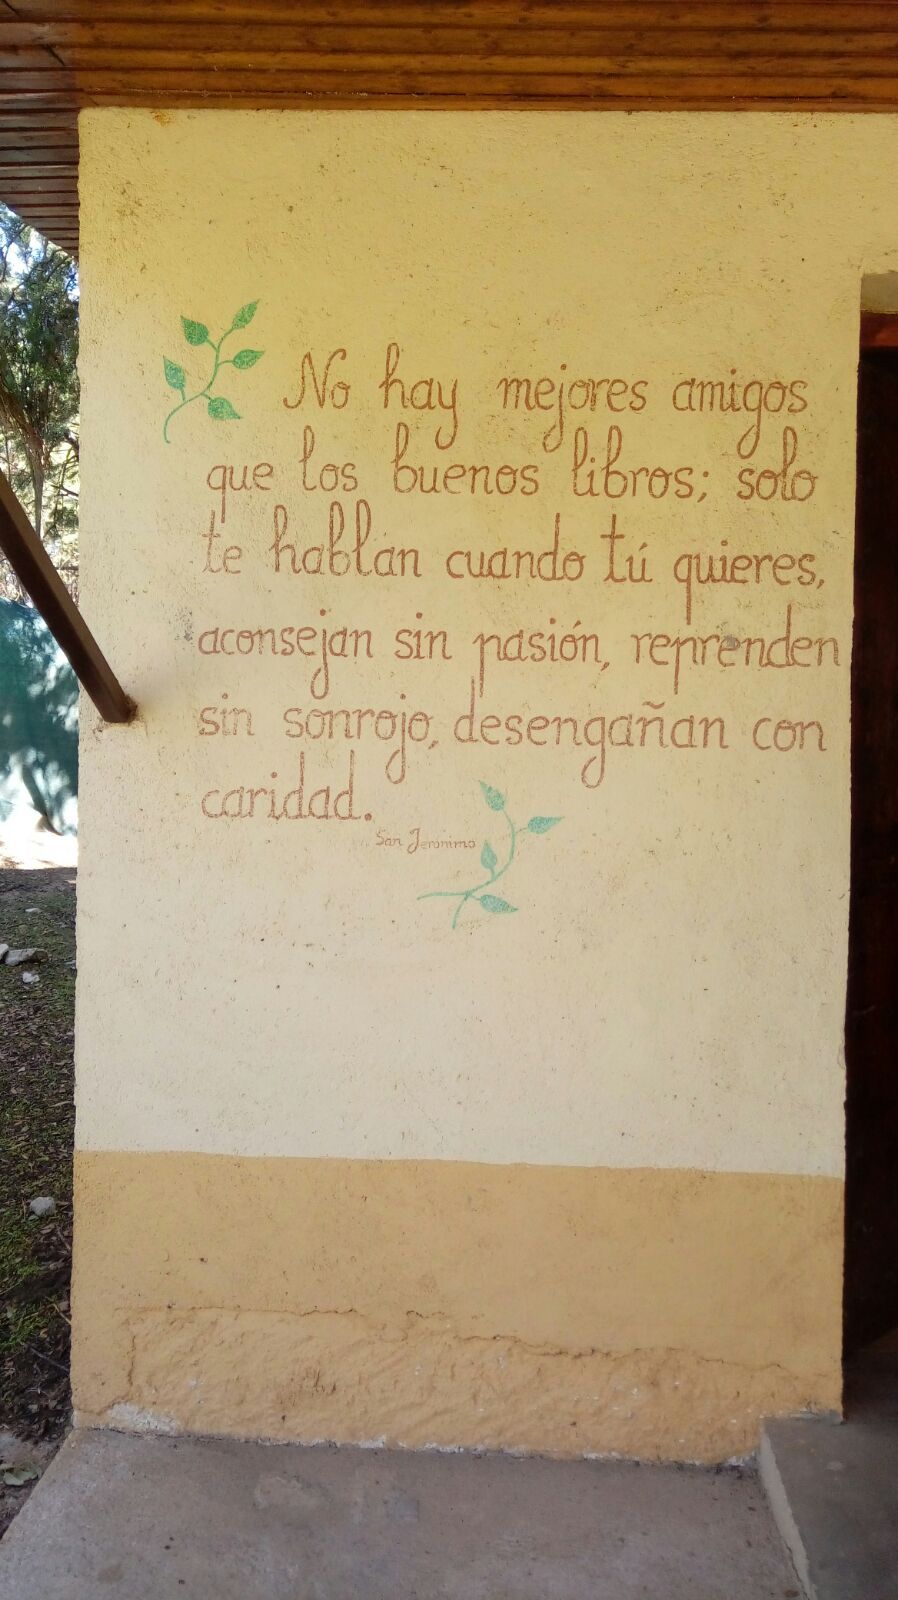 No hay mejores amigos
que los buenos libros; solo
te hablan cuando tú quieres,
aconsejan sin pasión, reprenden
sin sonrojo, desengañan con
caridad.
San Jerónimo